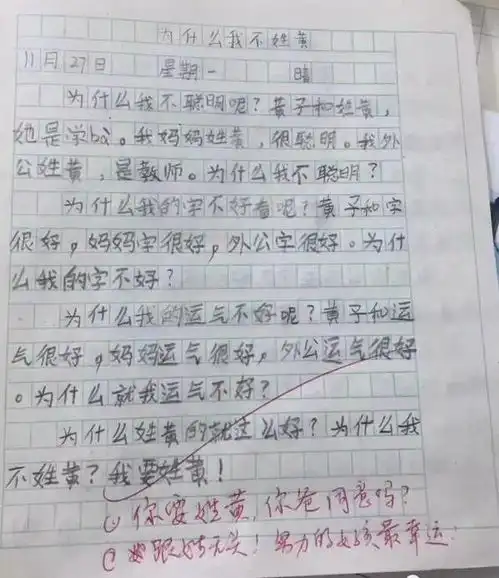 为什么我不姓黄
11月27日 星期一 晴
为什么我不聪明呢？黄子和姓黄，
她是学bà。我妈妈姓黄，很聪明。我外
公姓黄，是教师。为什么我不聪明？
为什么我的字不好看呢？黄子和字
很好，妈妈字很好，外公字很好。为什
么我的字不好？
为什么我的运气不好呢？黄子和运
气很好，妈妈运气很好，外公运气很好
。为什么就我运气不好？
为什么姓黄的就这么好？为什么我
不姓黄？我要姓黄！
你要姓黄，你爸同意吗？
跟姓无关！努力的女孩最幸运！